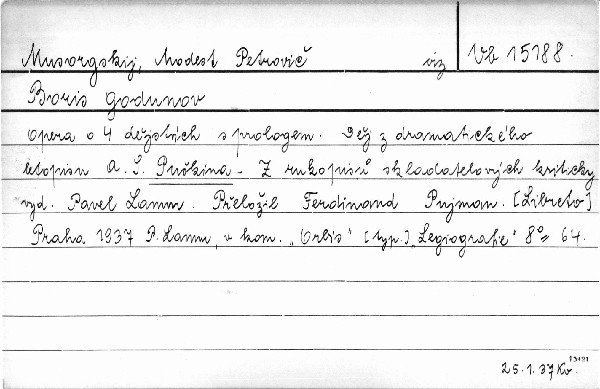 Musorgskij, Modest Petrovič viz Vb 15188.
Boris Godunov
Opera o 4 dějstvích s prologem. Děj z dramatického
letopisu A. S. Puškina - Z rukopisů skladatelových kriticky
vyd. Pavel Lamm. Přeložil Ferdinand Pujman. [Libreto]
Praha 1937 P. Lamm, v kom. „Orbis" [typ.] „Legiografie" 8° 64.
13421
25.1.37 Ko.